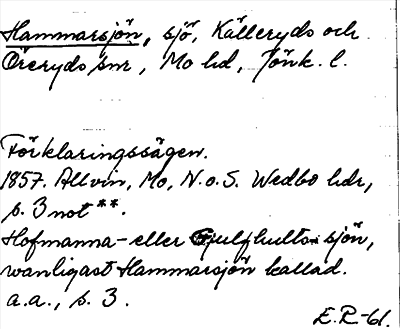 Hammarsjön, sjö, Källeryds och
Öreryds snr, Mo hd, Jönk. l.
Förklaringssägen.
1857. Allvin, Mo, N. o. S. Wedbo hdr,
s. 3 not **.
Hofmanna- eller Gjulfhults-sjön,
wanligast Hammarsjön kallad.
a.a., s. 3.
E.R-61.